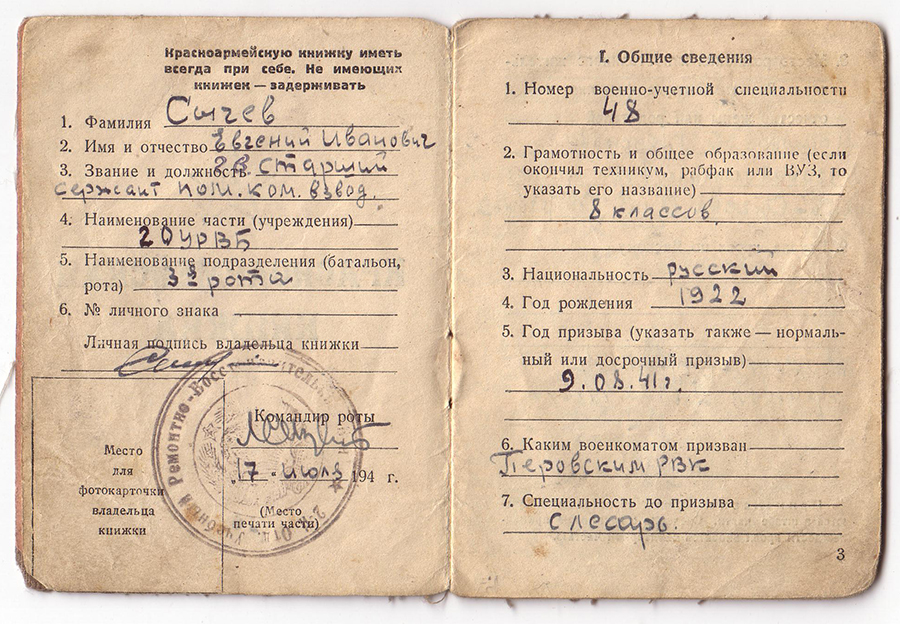 Красноармейскую книжку иметь
всегда при себе. Не имеющих
книжек — задерживать
1. Фамилия Сычев
2. Имя и отчество Евгений Иванович
3. Звание и должность гв старший
сержант пом. ком. взвод.
4. Наименование части (учреждения)
20УРВБ
5. Наименование подразделения (батальон,
рота) 3я рота
6. № личного знака
Личная подпись владельца книжки
Командир роты
17 июля 194 г.
(Место
печати части)
Место
для
фотокарточки
владельца
книжки
Учебный Ремонтно-Восстановительный
I. Общие сведения
1. Номер военно-учетной специальности
48
2. Грамотность и общее образование (если
окончил техникум, рабфак или ВУЗ, то
указать его название)
8 классов
3. Национальность русский
4. Год рождения 1922
5. Год призыва (указать также — нормаль-
ный или досрочный призыв)
9.08.41г.
6. Каким военкоматом призван
Перовским РВК
7. Специальность до призыва
слесарь.
3